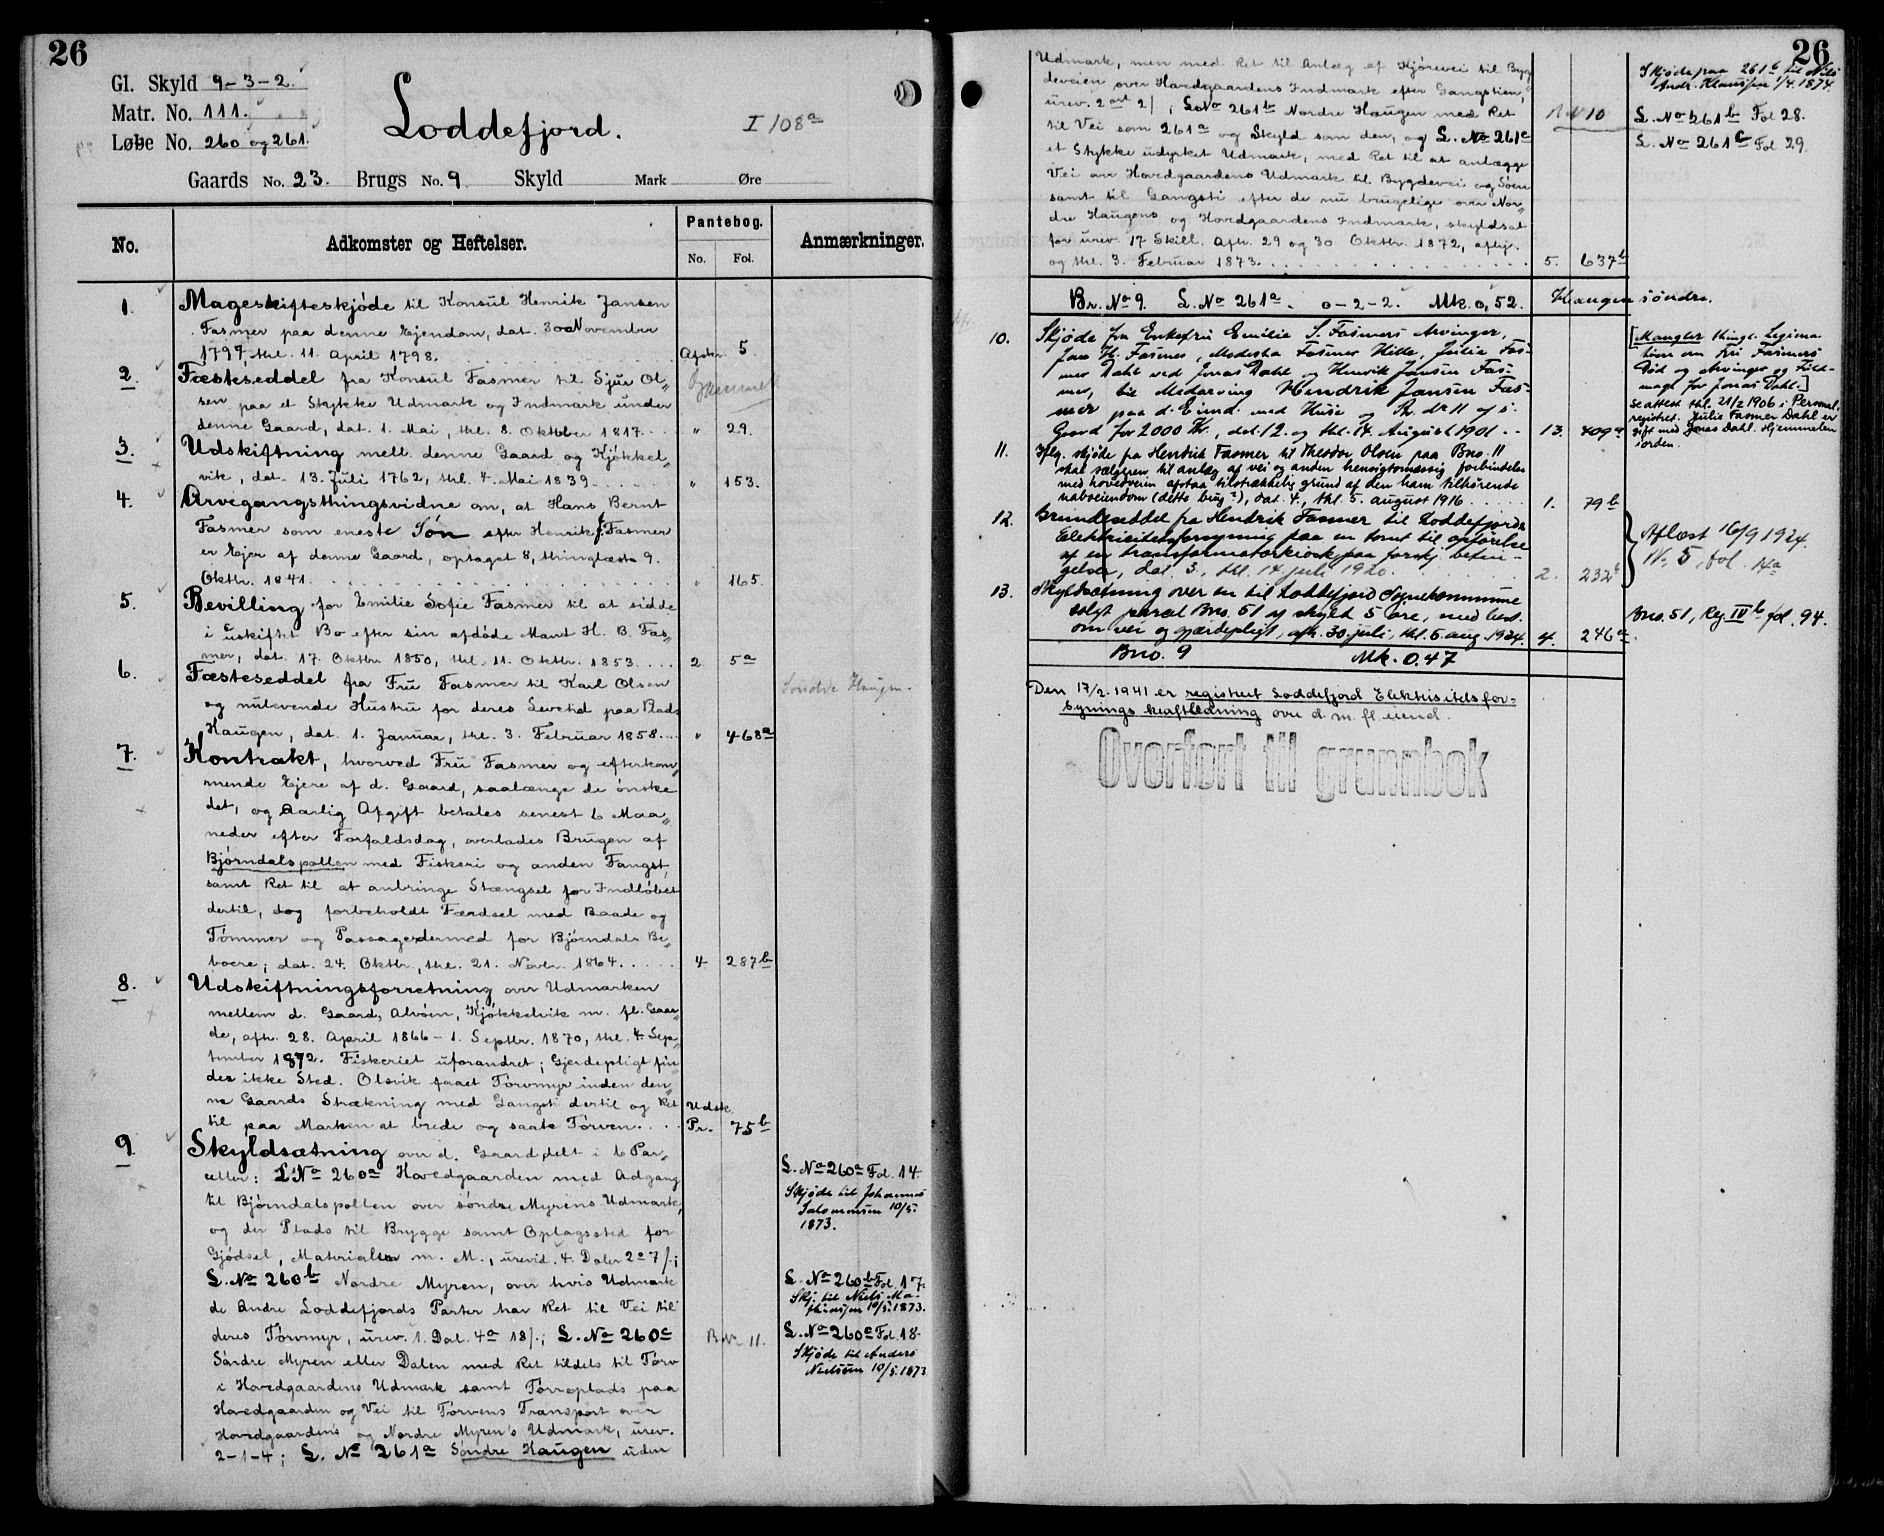 26
Gl. Skyld 9-3-2.
Matr. No. 111.
Løbe No. 260 og 261.
Loddefjord.
I 108a
Gaards No. 23. Brugs No. 9 Skyld Mark Øre
No.
Adkomster og Heftelser.
Pantebog.
No. Fol.
Anmærkninger.
1. Mageskifteskjøde til Konsul Henrik Jansen
Fasmer paa denne Ejendom, dat. 30 November
1797, thl. 11. April 1798. Afskr. 5.
2. Fæsteseddel fra Konsul Fasmer til Sjur Ol„
sen paa et Stykke Udmark og Indmark under
denne Gaard, dat. 1. Mai, thl. 8. Oktober 1817. " 29.
3. Udskiftning mell. denne Gaard og Kjøkkel„
vik, dat. 13. Juli 1762, thl. 4. Mai 1839. " 153.
4. Arvegangsthingsvidne om, at Hans Bernt
Fasmer som eneste Søn efter Henrik J. Fasmer
er Ejer af denne Gaard, optaget 8, thinglæst 9.
Oktbr. 1841. " 165.
5. Bevilling for Emilie Sofie Fasmer til at sidde
i uskiftet Bo efter sin afdøde Mand H. B. Fas„
mer, dat. 17. Oktbr. 1850, thl. 11. Oktbr. 1853. 2 5a
6. Fæsteseddel fra Fru Fasmer til Karl Olsen
og nulevende Hustru for deres Levetid paa Plads
Haugen, dat. 1. Januar, thl. 3. Februar 1858. " 468a
Søndre Haugen
7. Kontrakt, hvorved Fru Fasmer og efterkom„
mende Ejere af d. Gaard, saalænge de ønske
det, og aarlig Afgift betales senest 6 Maa„
neder efter Forfaldsdag, overlades Brugen af
Bjørndalspollen med Fiskeri og anden Fangst,
samt Ret til at anbringe Stængsel for Indløbet
dertil, dog forbeholdt Færdsel med Baade og
Tømmer og Passage dermed for Bjørndals Be„
boere; dat. 24. Oktbr., thl. 21. Novbr. 1864. 4 287b
8. Udskiftningsforretning over Udmarken
mellem d. Gaard, Alvøen, Kjøkkelvik m. fl. Gaar„
de, afh. 28. April 1866 - 1. Septbr. 1870, thl. 4. Sep„
tember 1872. Fiskeriet uforandret; Gjerdepligt fin„
der ikke Sted. Olsvik faaet Torvmyr inden den„
ne Gaards Strækning med Gangsti dertil og Ret
til paa Marken at brede og saate Torven. Udsk. Pr. 75b
9. Skyldsætning over d. Gaard, delt i 6 Par„
celler: L. No 260a Hovedgaarden med Adgang
til Bjørndalspollen over søndre Myrens Udmark,
og der Plads til Brygge samt Oplagssted for
Gjødsel, Materialer m. M., urevid. 4 Daler 2 ort 7 ß;
L. No 260b Nordre Myren, over hvis Udmark
de Andre Loddefjords Parter har Ret til Vei til
deres Torvmyr, urev. 1. Dal. 4 ort 18 ß.; L. No 260c
Søndre Myren eller Dalen med Ret tildels til Torv
i Hovedgaardens Udmark samt Tørreplads paa
Hovedgaarden og Vei til Torvens Transport over
Hovedgaardens og Nordre Myren's Udmark, urev.
2-1-4; L. No 261a Søndre Haugen uden
L. No 260a Fol. 14.
Skjøde til Johannes
Salomonsen 10/5.
1873.
L. No 260b Fol. 17.
Skj. til Niels Ma-
thiassen 10/5.1873.
B. Nr. 11.
L. No 260c Fol. 18.
Skjøde til Anders
Nielsen 10/5.1873
26
Udmark, men med Ret til Anlæg af Kjørevei til Byg„
deveien over Hovedgaardens Indmark efter Gangstien,
urev. 2 ort 2 ß; L. No 261b Nordre Haugen med Ret
til Vei som 261a og Skyld som den, og L. No 261c
et Stykke udyrket Udmark, med Ret til at anlægge
Vei over Hovedgaardens Udmark til Bygdevei og Søen
samt til Gangsti efter de nu brugelige over Nor„
dre Haugens og Hovedgaardens Indmark, skyldsat
for urev. 17 Skill. Afh. 29 og 30 Oktbr. 1872, afhj.
og thl. 3. Februar 1873. 5. 637b
B N 10
Skjøde paa 261b til Nils
Andr. Klaussen 1/4.1874.
L. No 261b Fol 28.
L. No 261c Fol 29.
Br. No 9. L. No 261a. 0-2-2. Mk. 0,52. Haugen søndre.
10. Skjøde fra Enkefru Emilie S. Fasmers Arvinger,
Jans H. Fasmer, Modesta Fasmer Hille, Julie Fas-
mer Dahl ved Jonas Dahl og Henrik Jansen Fas-
mer, til Medarving Hendrik Jansen Fas-
mer paa d. Eiend. med Huse og Br. Nr 11 af s.
Gaard for 2000 Kr., dat. 12. og thl. 14. August 1901. 13. 409a
[Mangler thingl. Legima-
tion om Fru Fasmers
Død og Arvinger og Fuld-
magt for Jonas Dahl.]
Se attest thl. 21/2 1906 i Personal-
registret. Julie Fasmer Dahl er
gift med Jonas Dahl. Hjemmelen
iorden.
11. Iflg. skjøde fra Hendrik Fasmer til Theodor Olsen paa Bno. 11
skal sælgeren til anlæg af vei og anden hensigtsmæssig forbindelse
med hovedveien afstaa tilstrækkelig grund af den ham tilhørende
naboeiendom (dette brug?), dat. 4., thl. 5. august 1916 1. 79b
12. Grundseddel fra Hendrik Fasmer til Loddefjords
Elektricitetsforsyning paa en tomt til opførelse
af en transformatorkiosk paa forskj. betin-
gelser, dat. 3., thl. 14 juli 1920. 2. 232b
Aflæst 16/9 1924.
N. 5, fol. 14a
13. Skyldsætning over en til Loddefjord Sognekommune
solgt parcel Bno. 51 af skyld 5 øre, med best.
om vei og gjærdepligt, afh. 30. juli, thl. 5. aug. 1924. 4. 246a.
Bno. 51, Reg. IVb fol. 94.
Bno. 9 Mk. 0.47
Den 17/2. 1941 er registrert Loddefjord Elektrisitetsfor-
synings kraftledning over d. m. fl. eiend.
Overført til grunnbok